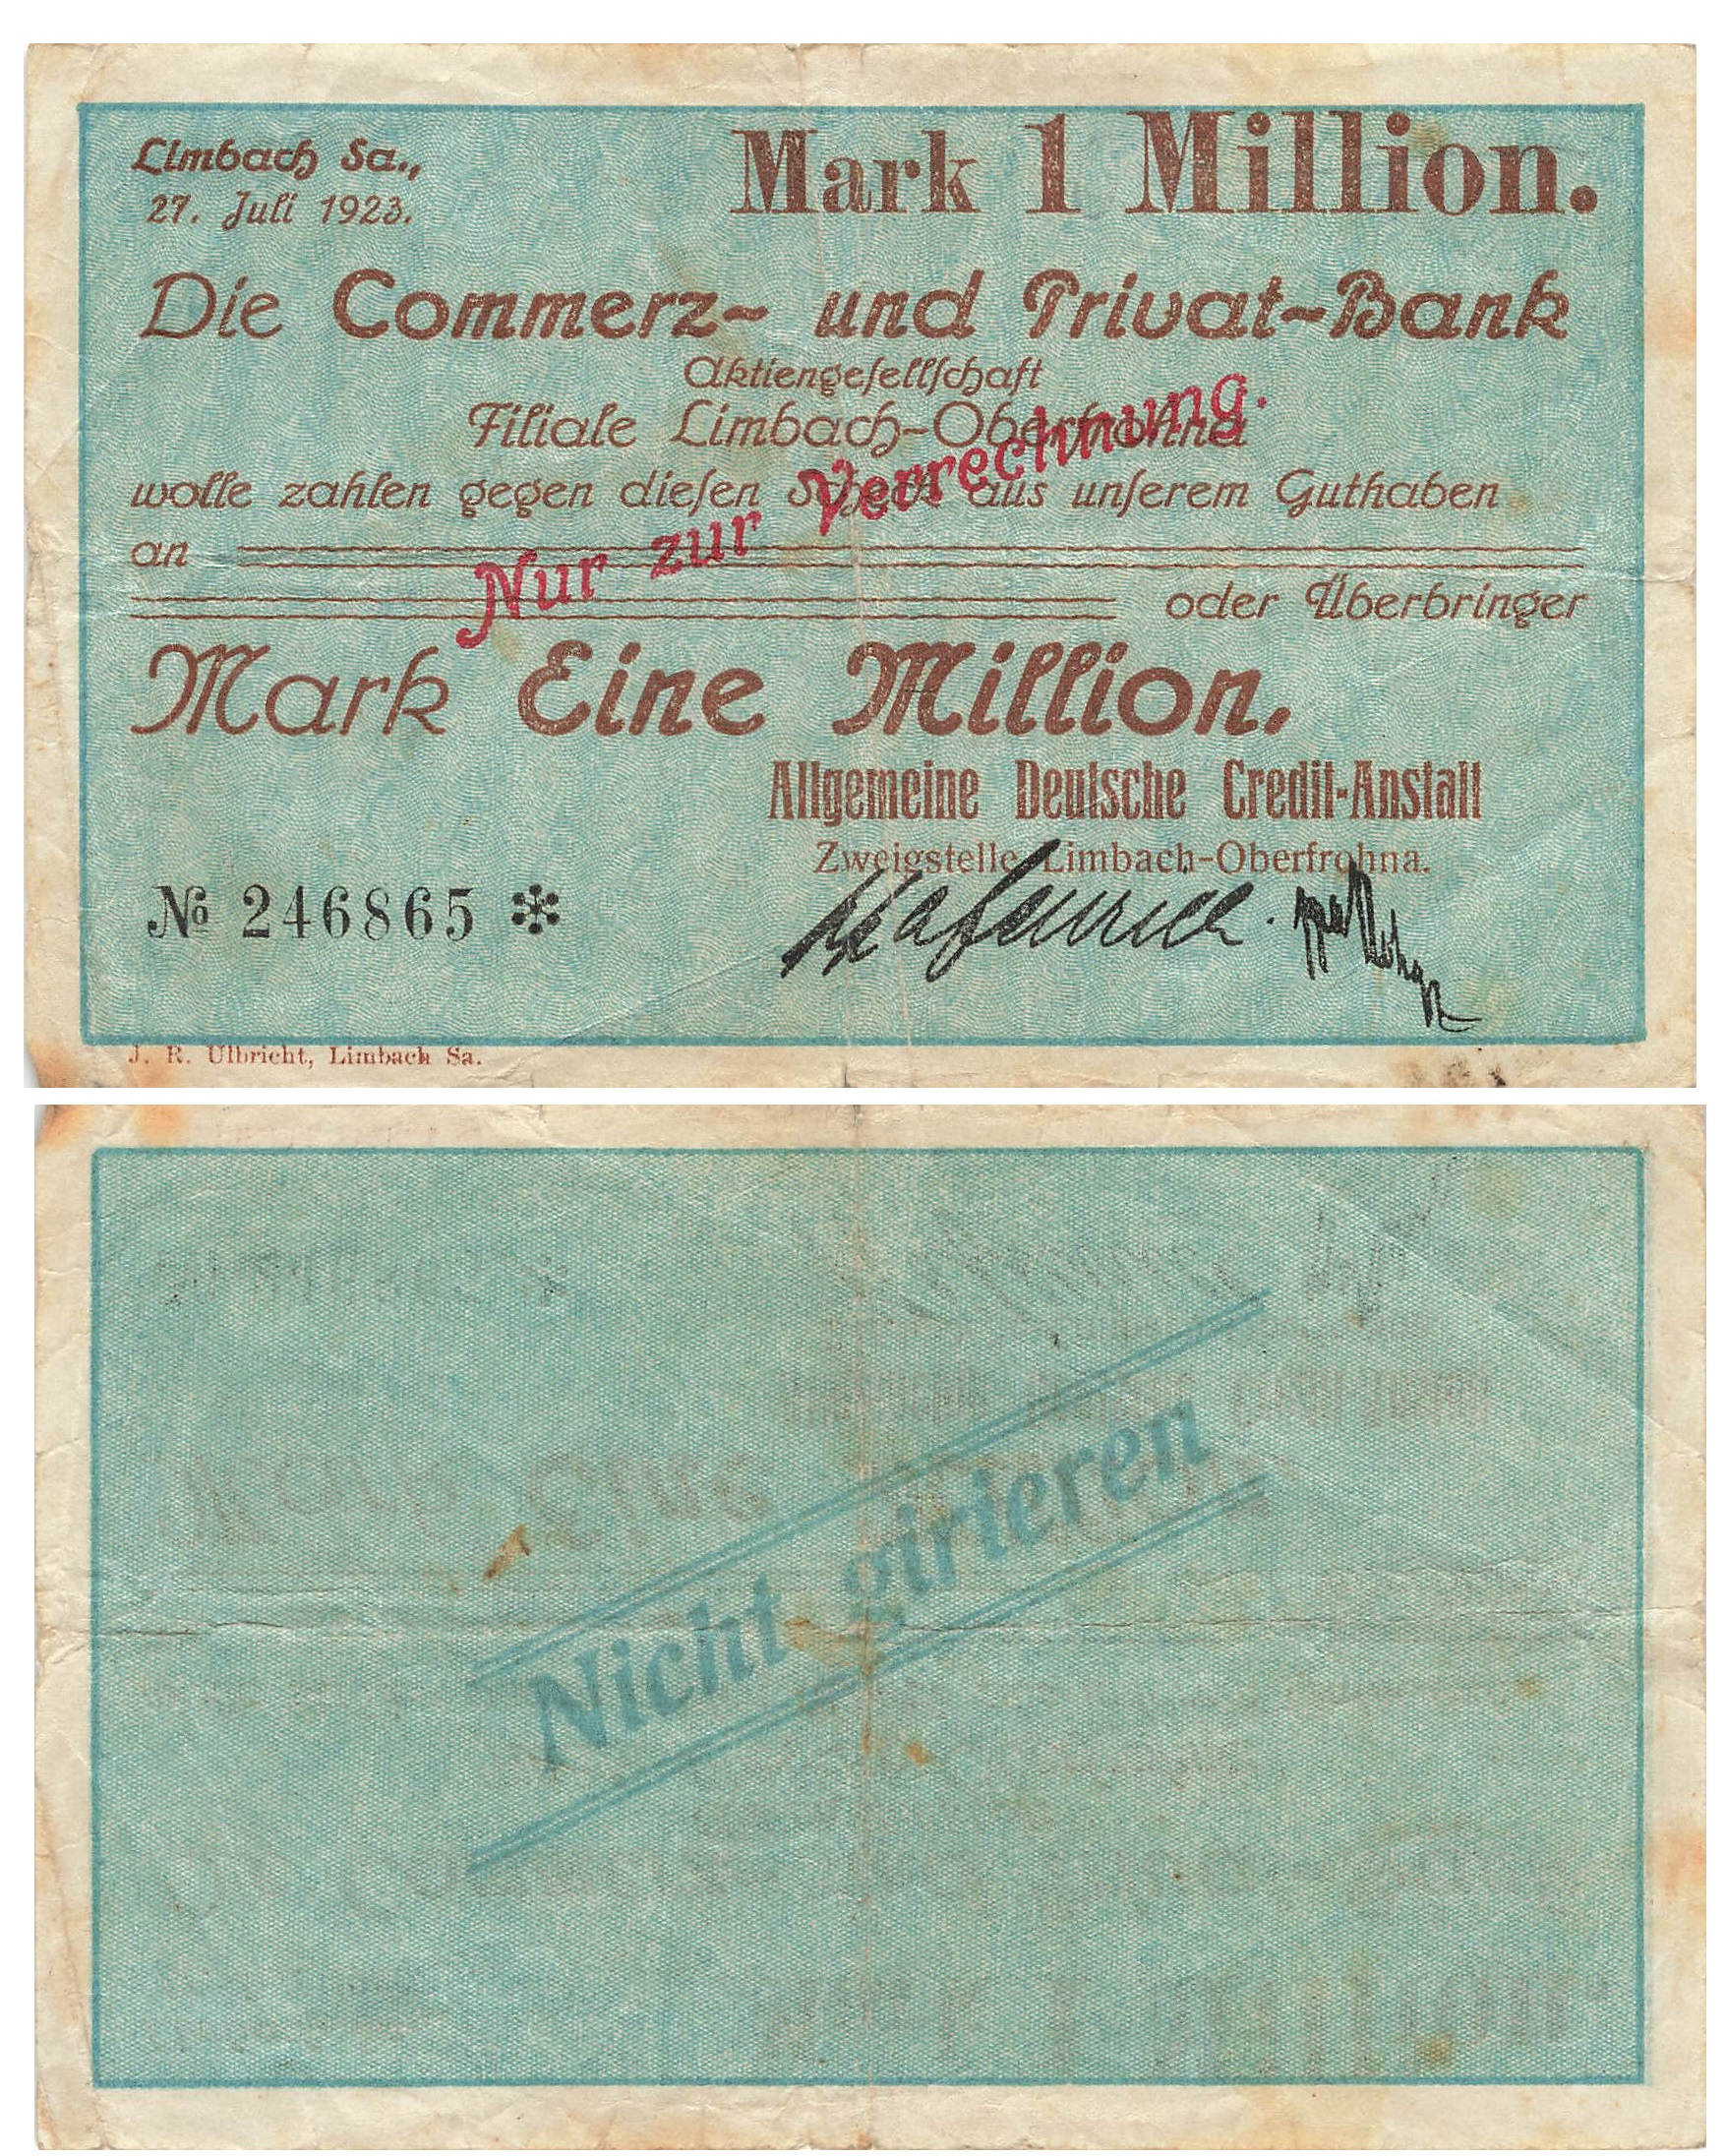 Limbach Sa.,
27. Juli 1923.
Mark 1 Million.
Die Commerz- und Privat-Bank
Aktiengeſellſchaft
Filiale Limbach-Oberfrohna
wolle zahlen gegen dieſen Scheck aus unſerem Guthaben
an
oder Überbringer
Nur zur Verrechnung.
Mark Eine Million.
Allgemeine Deutsche Credit-Anstalt
Zweigstelle Limbach-Oberfrohna.
№ 246865 *
J. R. Ulbricht, Limbach Sa.
Nicht girieren